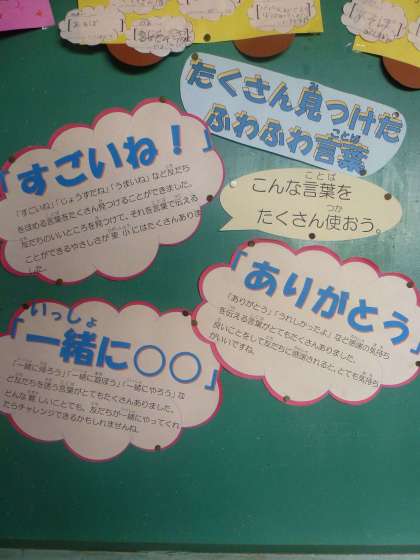 たくさん見つけた
ふわふわ言葉
こんな言葉を
たくさん使おう。
「すごいね！」
「すごいね」「じょうずだね」「うまいね」など友だち
をほめる言葉をたくさん見つけることができました。
友だちのいいところを見つけて、それを言葉で伝える
ことができるやさしさが東小にはたくさんありま
した。
「ありがとう」
「ありがとう」「うれしかったよ」など感謝の気持ち
を伝える言葉がとてもたくさんありました。
良いことをして友だちに感謝されると、とても気持ち
がいいですね。
「一緒に○○」
「一緒に帰ろう」「一緒に遊ぼう」「一緒にやろう」な
ど友だちを誘う言葉がとてもたくさんありました。
どんな難しいことでも、友だちが一緒にやってくれ
たらチャレンジできるかもしれませんね。